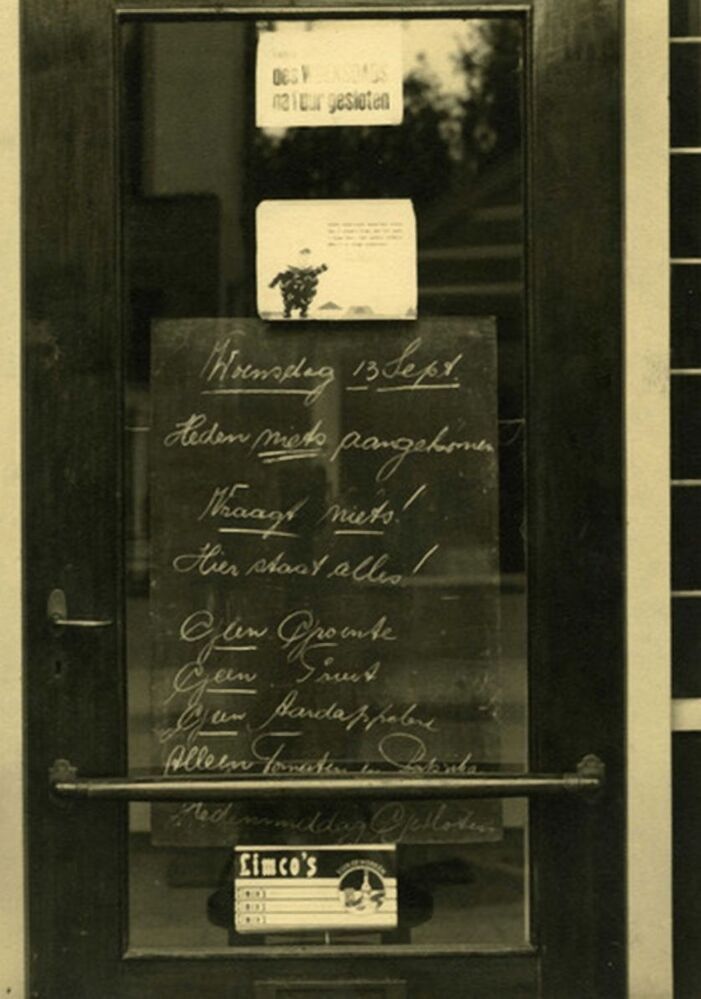 des WEEKSDAGS
na 1 uur gesloten
Woensdag 13 Sept.
Heden niets aangekomen
Vraagt niets!
Hier staat alles!
Geen Groente
Geen Fruit
Geen Aardappelen
Alleen Tomaten en Paprika
Hedenmiddag Gesloten
Limco's